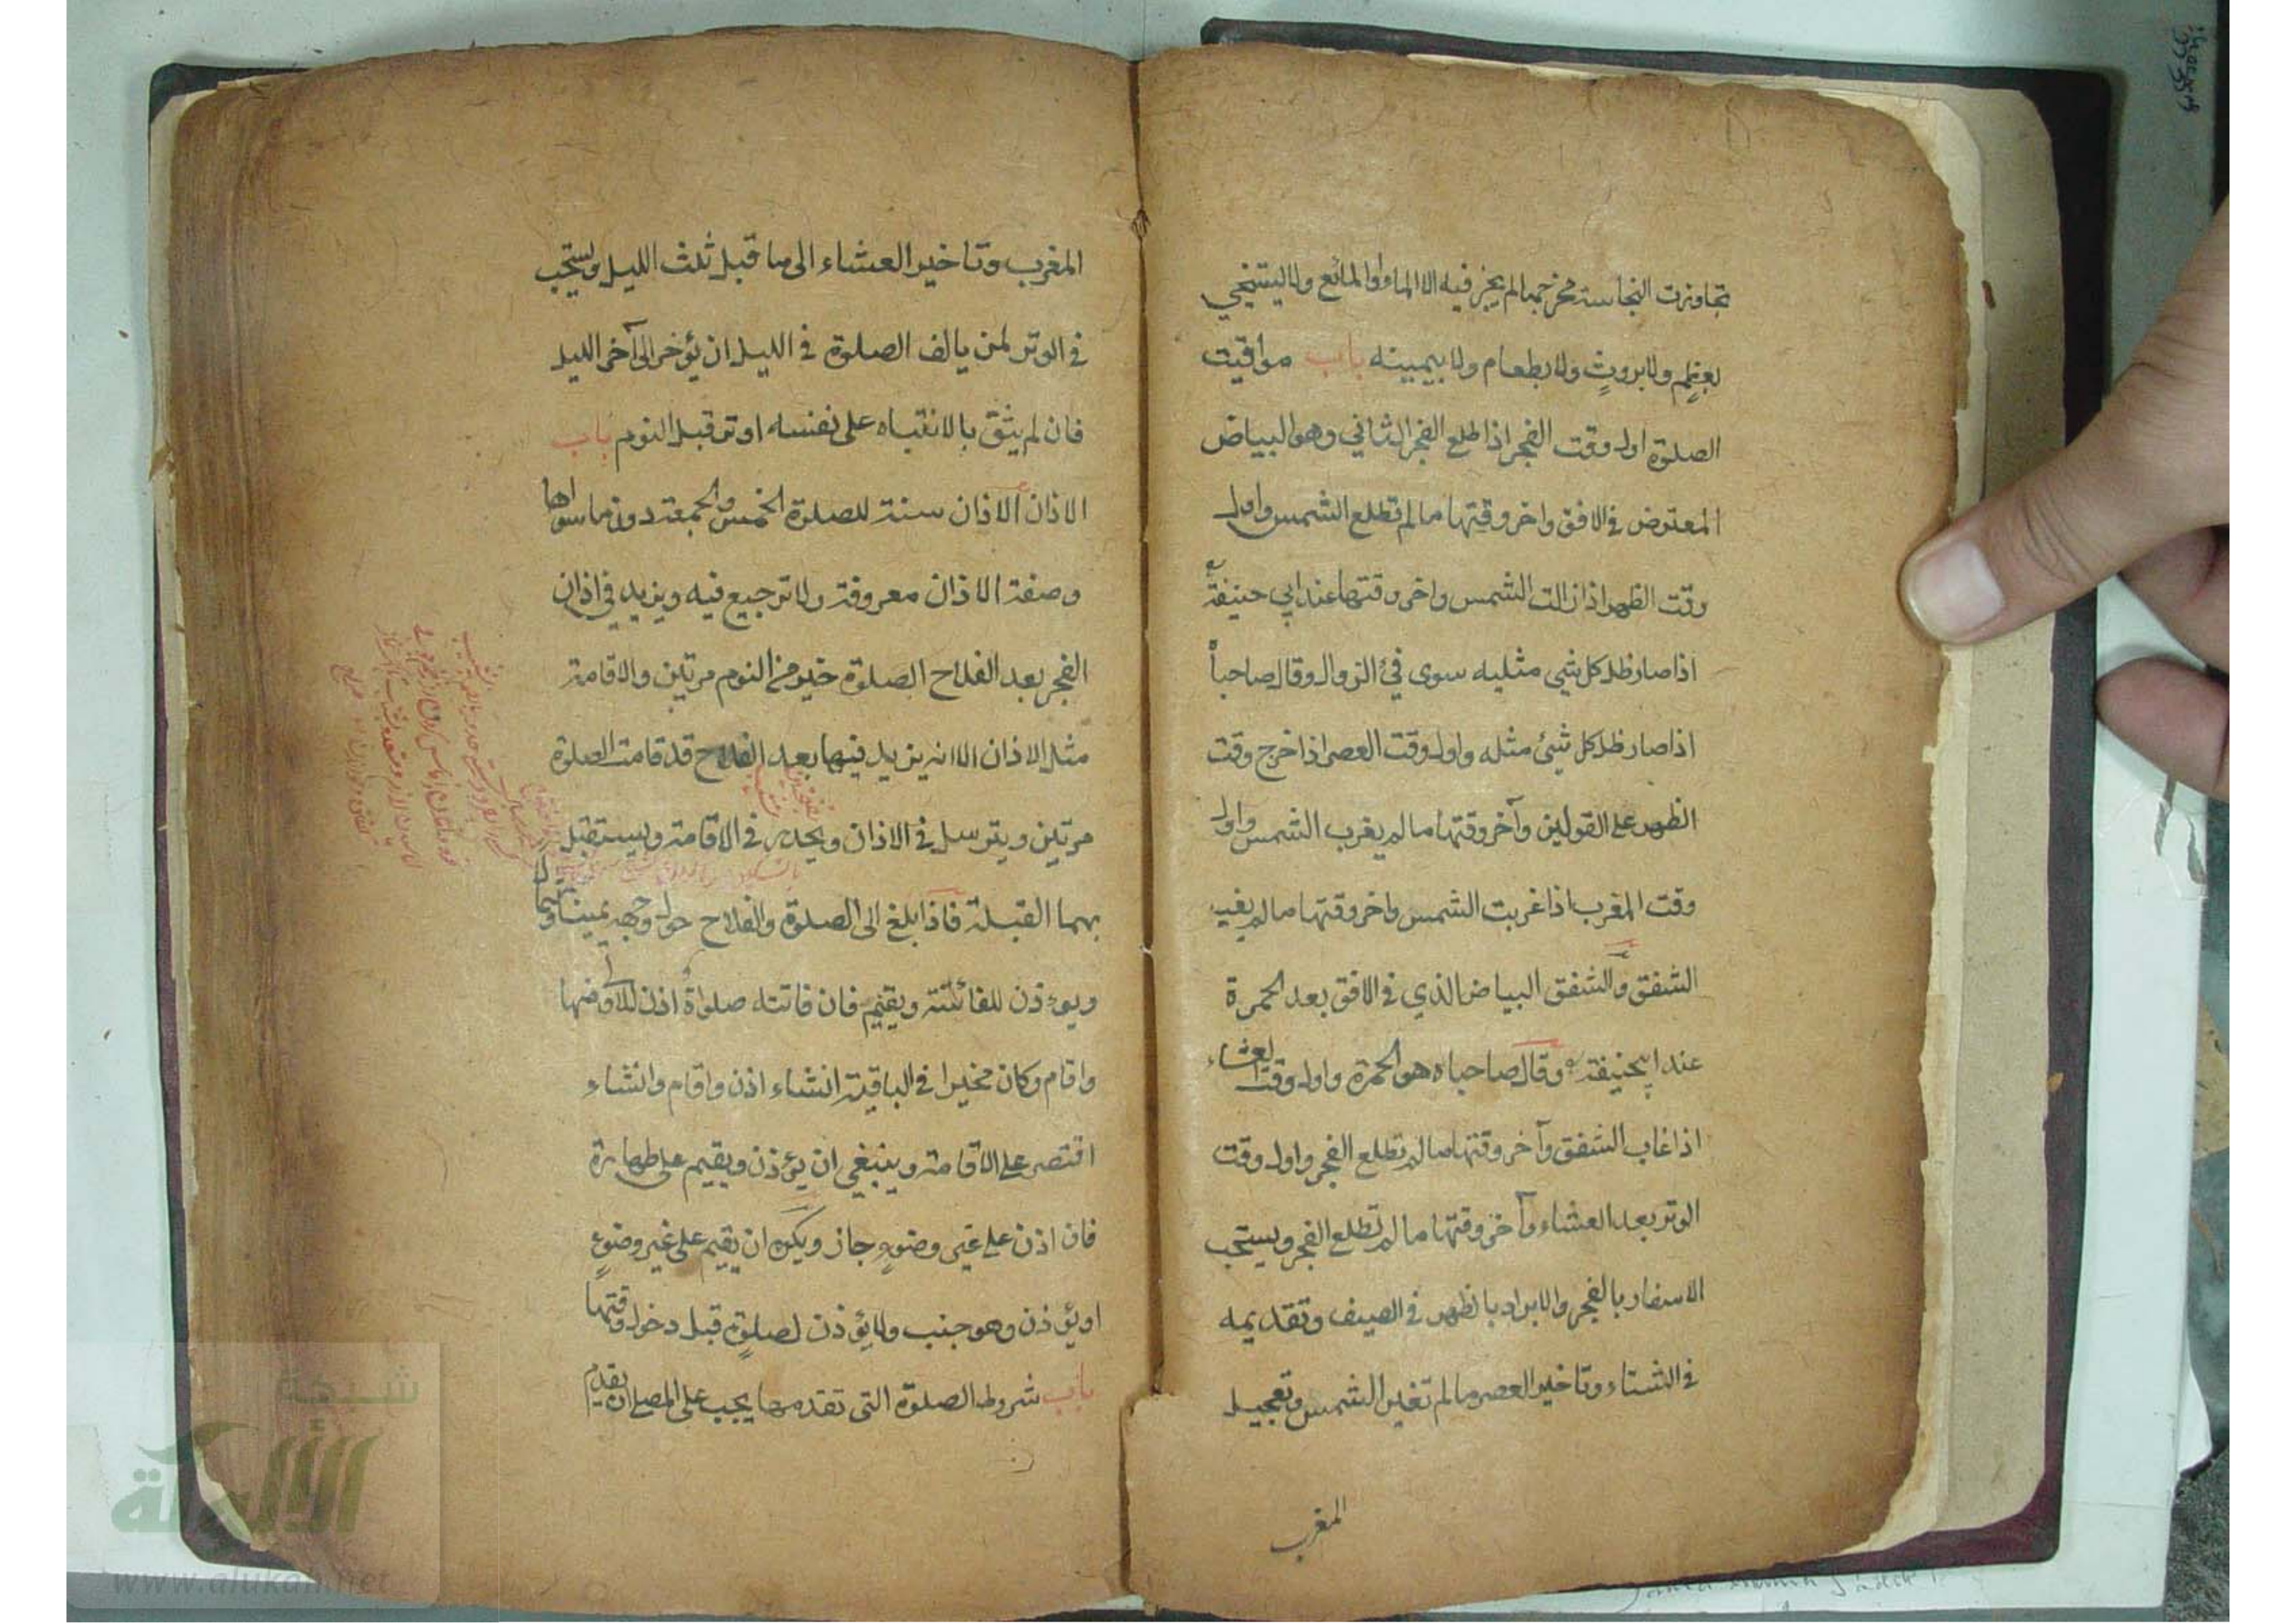 تجاوزت النجاسة مخرجها لم يجز فيه الا الماء او المائع ولا يستنجي
بعظم ولا بروث ولا بطعام ولا بيمينه باب مواقيت
الصلوة اول وقت الفجر اذا طلع الفجر الثاني وهو البياض
المعترض في الافق واخر وقتها ما لم تطلع الشمس واول
وقت الظهر اذا زالت الشمس واخر وقتها عند ابي حنيفة
اذا صار ظل كل شي مثليه سوى في الزوال وقال صاحباه
اذا صار ظل كل شئ مثله واول وقت العصر اذا خرج وقت
الظهر على القولين وآخر وقتها ما لم يغرب الشمس واول
وقت المغرب اذا غربت الشمس واخر وقتها ما لم يغيب
الشفق والشفق البياض الذي في الافق بعد الحمرة
عند ابيحنيفة وقال صاحباه هو الحمرة واول وقت العشاء
اذا غاب الشفق وآخر وقتها ما لم تطلع الفجر واول وقت
الوتر بعد العشاء وآخر وقتها ما لم تطلع الفجر ويستحب
الاسفار بالفجر والابراد بالظهر في الصيف وتقديمه
في الشتاء وتاخير العصر ما لم تغير الشمس وتعجيل
المغرب
المغرب وتاخير العشاء الى ما قبل ثلث الليل ويستحب
في الوتر لمن يالف الصلوة في الليل ان يؤخر الى آخر الليل
فان لم يثق بالانتباه على نفسه اوتر قبل النوم باب
الاذان الاذان سنة للصلوة الخمس والجمعة دون ما سواها
وصفة الاذان معروفة ولا ترجيع فيه ويزيد في اذان
الفجر بعد الفلاح الصلوة خير من النوم مرتين والاقامة
مثل الاذان الا انه يزيد فيها بعد الفلاح قد قامت الصلوة
مرتين ويترسل في الاذان ويحدر في الاقامة ويستقبل
بهما القبلة فاذا بلغ الى الصلوة والفلاح حول وجهه يمينا وشمالا
ويوذن للفائتة ويقيم فان فاتته صلواة اذن للاولى منها
واقام وكان مخيرا في الباقية انشاء اذن واقام وانشاء
اقتصر على الاقامة وينبغي ان يؤذن ويقيم على طهارة
فان اذن على غير وضوء جاز ويكره ان يقيم على غير وضوء
او يؤذن وهو جنب ولا يؤذن لصلوة قبل دخول وقتها
باب شروط الصلوة التي تقدمها يجب على المصلى ان يقدم
شبكة
الألوكة
www.alukah.net